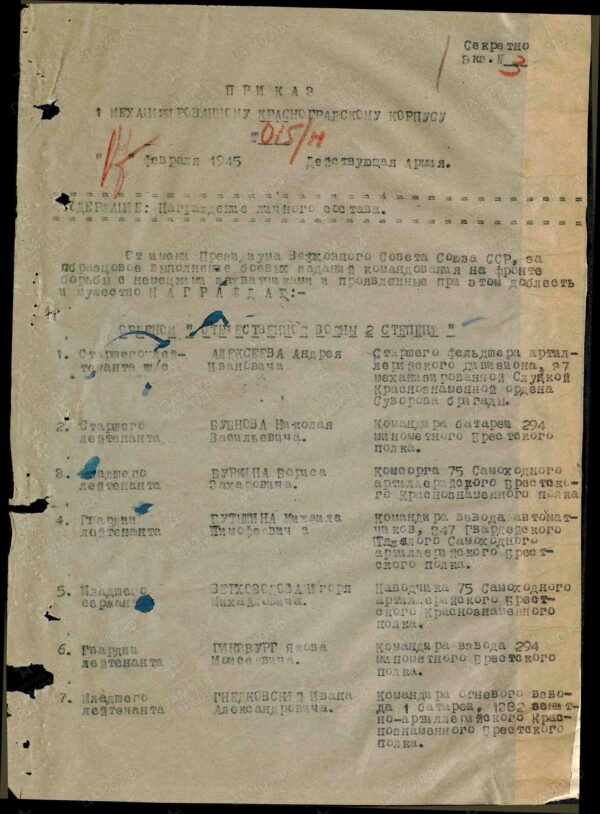 Секретно
Экз. № 3
ПРИКАЗ
1 МЕХАНИЗИРОВАННОМУ КРАСНОГРАДСКОМУ КОРПУСУ
№ 015/н
" " февраля 1945 Действующая Армия.
СОДЕРЖАНИЕ: Награждение личного состава.
От имени Президиума Верховного Совета Союза ССР, за
образцовое выполнение боевых заданий командования на фронте
борьбы с немецкими захватчиками и проявленные при этом доблесть
и мужество НАГРАЖДАЮ:-
ОРДЕНОМ "ОТЕЧЕСТВЕННОЙ ВОЙНЫ 2 СТЕПЕНИ"
1. Старшего лей- АЛЕКСЕЕВА Андрея Старшего фельдшера артил-
тенанта м/с Ивановича лерийского дивизиона, 37
механизированной Слуцкой
Краснознаменной ордена
Суворова бригады.
2. Старшего БУБНОВА Николая Командира батареи 294
лейтенанта Васильевича. минометного Брестского
полка.
3. Младшего БУРКИНА Бориса Комсорга 75 Самоходного
лейтенанта Захаровича. артиллерийского Брестско-
го Краснознаменного полка
4. Гвардии Михаила Командира взвода автомат-
лейтенанта Тимофеевича чиков, 347 Гвардейского
Тяжелого Самоходного
артиллерийского Брест-
ского полка.
5. Младшего ВЕРХОВОДОВА Игоря Наводчика 75 Самоходного
сержанта Михайловича. артиллерийского Брест-
ского Краснознаменного
полка.
6. Гвардии ГИНЗБУРГ Якова Командира взвода 294
лейтенанта Моисеевича. минометного Брестского
полка.
7. Младшего ГНЕДКОВСКИЙ Ивана Командира огневого взво-
лейтенанта Александровича. да 1 батареи, 1382 зенит-
но-артиллерийского Крас-
нознаменного Брестского
полка.